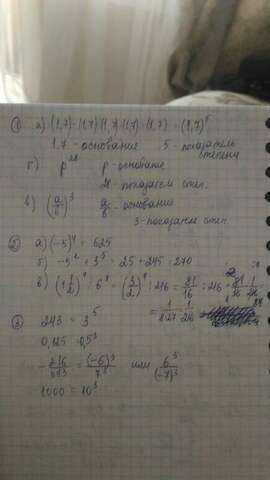 ① а) (1,7)·(1,7)(1,7)(1,7)·(1,7) = (1,7)⁵
1.7 - основание 5 - показатель степени
б) p²⁸ p - основание
28 - показатель степ.
в) (a/b)³ a/b - основание
3 - показател степ
② а) (-5)⁴ = 625
б) -5² + 3⁵ = 25 + 245 = 270
в) (1 1/2)⁴ : 6³ = (3/2)⁴ : 216 = 81/16 : 216 =
③ 243 = 3⁵
0,125 = 0,5³
-216/343 = (-6)³/7³ или 6³/(-7)³
1000 = 10³